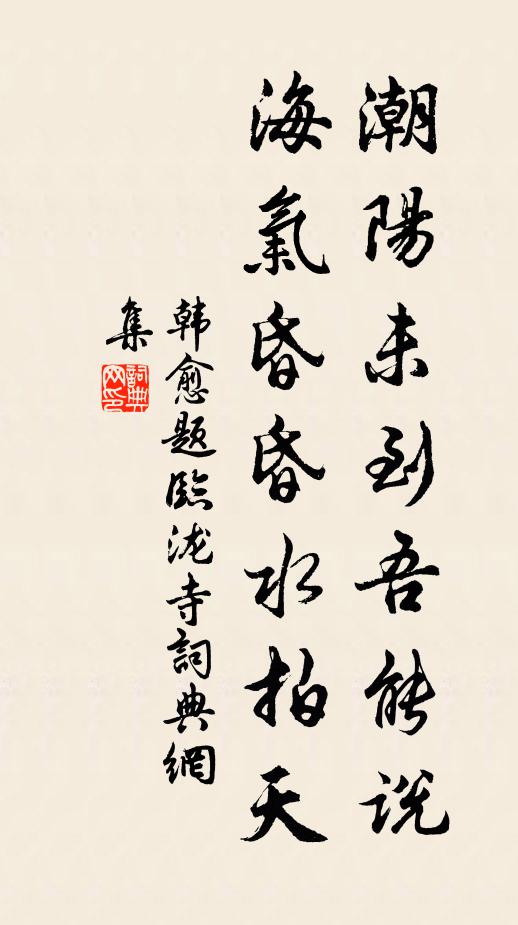 潮陽未到吾能說
海氣昏昏水拍天
韩愈题臨泷寺詞典網
集
詞典网印